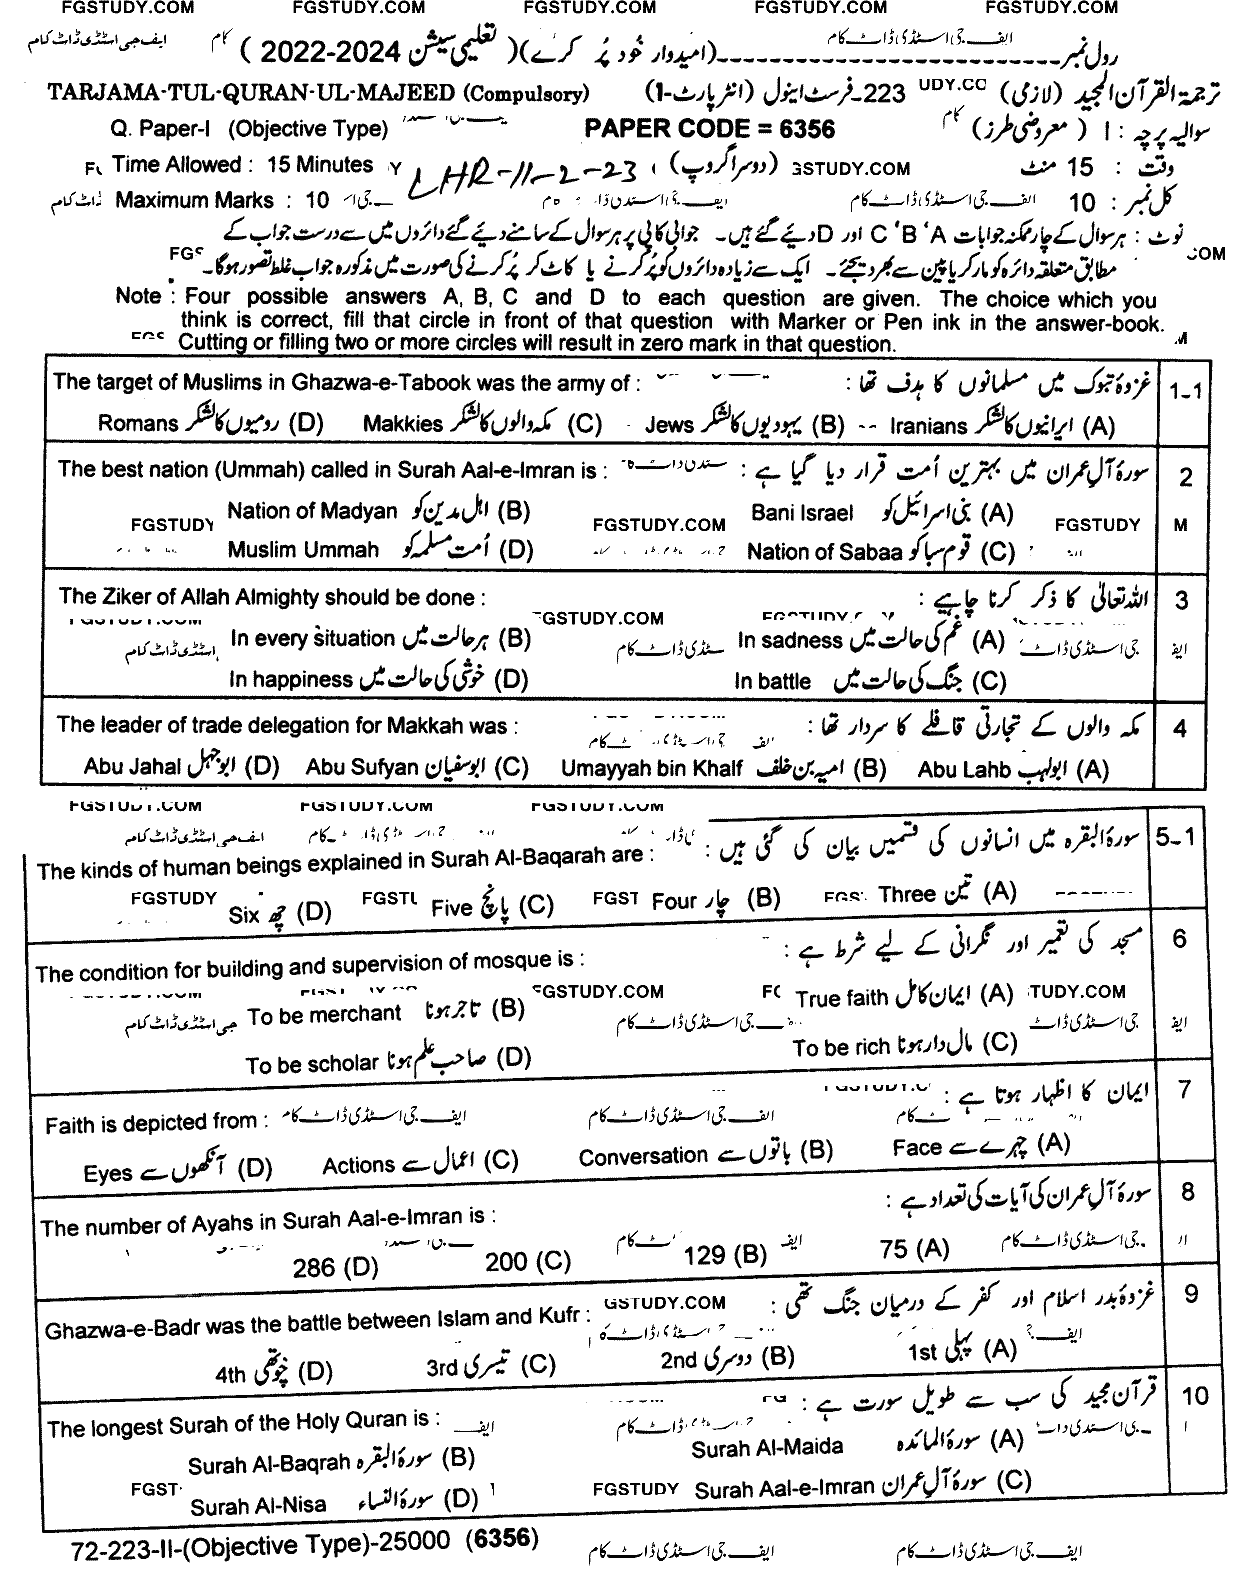 FGSTUDY.COM FGSTUDY.COM FGSTUDY.COM FGSTUDY.COM FGSTUDY.COM
رول نمبر (امیدوار خود پُر کرے) (تعلیمی سیشن 2022-2024) ایف جی اسٹڈی ڈاٹ کام
TARJAMA-TUL-QURAN-UL-MAJEED (Compulsory) ترجمۃ القرآن المجید (لازمی) 223۔فرسٹ اینول (انٹر پارٹ-I)
Q. Paper-I (Objective Type) PAPER CODE = 6356 سوالیہ پرچہ : I (معروضی طرز)
Time Allowed : 15 Minutes LHR-11-2-23 (دوسرا گروپ) GSTUDY.COM وقت : 15 منٹ
Maximum Marks : 10 ایف جی اسٹڈی ڈاٹ کام کل نمبر : 10
نوٹ : ہر سوال کے چار ممکنہ جوابات A‘ B‘ C اور D دیے گئے ہیں۔ جوابی کاپی پر ہر سوال کے سامنے دیے گئے دائروں میں سے درست جواب کے
مطابق متعلقہ دائرہ کو مارکر یا پین سے بھر دیجئے۔ ایک سے زیادہ دائروں کو پُر کرنے یا کاٹ کر پُر کرنے کی صورت میں مذکورہ جواب غلط تصور ہوگا۔
Note : Four possible answers A, B, C and D to each question are given. The choice which you
think is correct, fill that circle in front of that question with Marker or Pen ink in the answer-book.
Cutting or filling two or more circles will result in zero mark in that question.
The target of Muslims in Ghazwa-e-Tabook was the army of : غزوۂ تبوک میں مسلمانوں کا ہدف تھا : 1-1
Romans رومیوں کا لشکر (D) Makkies مکہ والوں کا لشکر (C) Jews یہودیوں کا لشکر (B) Iranians ایرانیوں کا لشکر (A)
The best nation (Ummah) called in Surah Aal-e-Imran is : سورۂ آلِ عمران میں بہترین اُمت قرار دیا گیا ہے : 2
FGSTUDY Nation of Madyan اہلِ مدین کو (B) FGSTUDY.COM Bani Israel بنی اسرائیل کو (A) FGSTUDY M
Muslim Ummah اُمت مسلمہ کو (D) Nation of Sabaa قوم سبا کو (C)
The Ziker of Allah Almighty should be done : اللہ تعالیٰ کا ذکر کرنا چاہیے : 3
FGSTUDY.COM
In every situation ہر حالت میں (B) In sadness غم کی حالت میں (A)
In happiness خوشی کی حالت میں (D) In battle جنگ کی حالت میں (C)
The leader of trade delegation for Makkah was : مکہ والوں کے تجارتی قافلے کا سردار تھا : 4
Abu Jahal ابو جہل (D) Abu Sufyan ابوسفیان (C) Umayyah bin Khalf امیہ بن خلف (B) Abu Lahb ابولہب (A)
FGSTUDY.COM FGSTUDY.COM FGSTUDY.COM
The kinds of human beings explained in Surah Al-Baqarah are : سورۃ البقرہ میں انسانوں کی قسمیں بیان کی گئی ہیں : 5-1
FGSTUDY Six چھ (D) Five پانچ (C) FGST Four چار (B) Three تین (A)
The condition for building and supervision of mosque is : مسجد کی تعمیر اور نگرانی کے لیے شرط ہے : 6
FGSTUDY.COM True faith ایمان کامل (A) TUDY.COM
To be merchant تاجر ہونا (B) ایف جی اسٹڈی ڈاٹ کام
To be scholar صاحب علم ہونا (D) To be rich مال دار ہونا (C)
Faith is depicted from : ایمان کا اظہار ہوتا ہے : 7
Eyes آنکھوں سے (D) Actions اعمال سے (C) Conversation باتوں سے (B) Face چہرے سے (A)
The number of Ayahs in Surah Aal-e-Imran is : سورۂ آلِ عمران کی آیات کی تعداد ہے : 8
286 (D) 200 (C) 129 (B) 75 (A)
Ghazwa-e-Badr was the battle between Islam and Kufr : GSTUDY.COM غزوۂ بدر اسلام اور کفر کے درمیان جنگ تھی : 9
4th چوتھی (D) 3rd تیسری (C) 2nd دوسری (B) 1st پہلی (A)
The longest Surah of the Holy Quran is : قرآن مجید کی سب سے طویل سورت ہے : 10
Surah Al-Baqrah سورۃ البقرہ (B) Surah Al-Maida سورۃ المائدہ (A)
FGST Surah Al-Nisa سورۃ النساء (D) FGSTUDY Surah Aal-e-Imran سورۂ آلِ عمران (C)
72-223-II-(Objective Type)-25000 (6356) ایف جی اسٹڈی ڈاٹ کام ایف جی اسٹڈی ڈاٹ کام